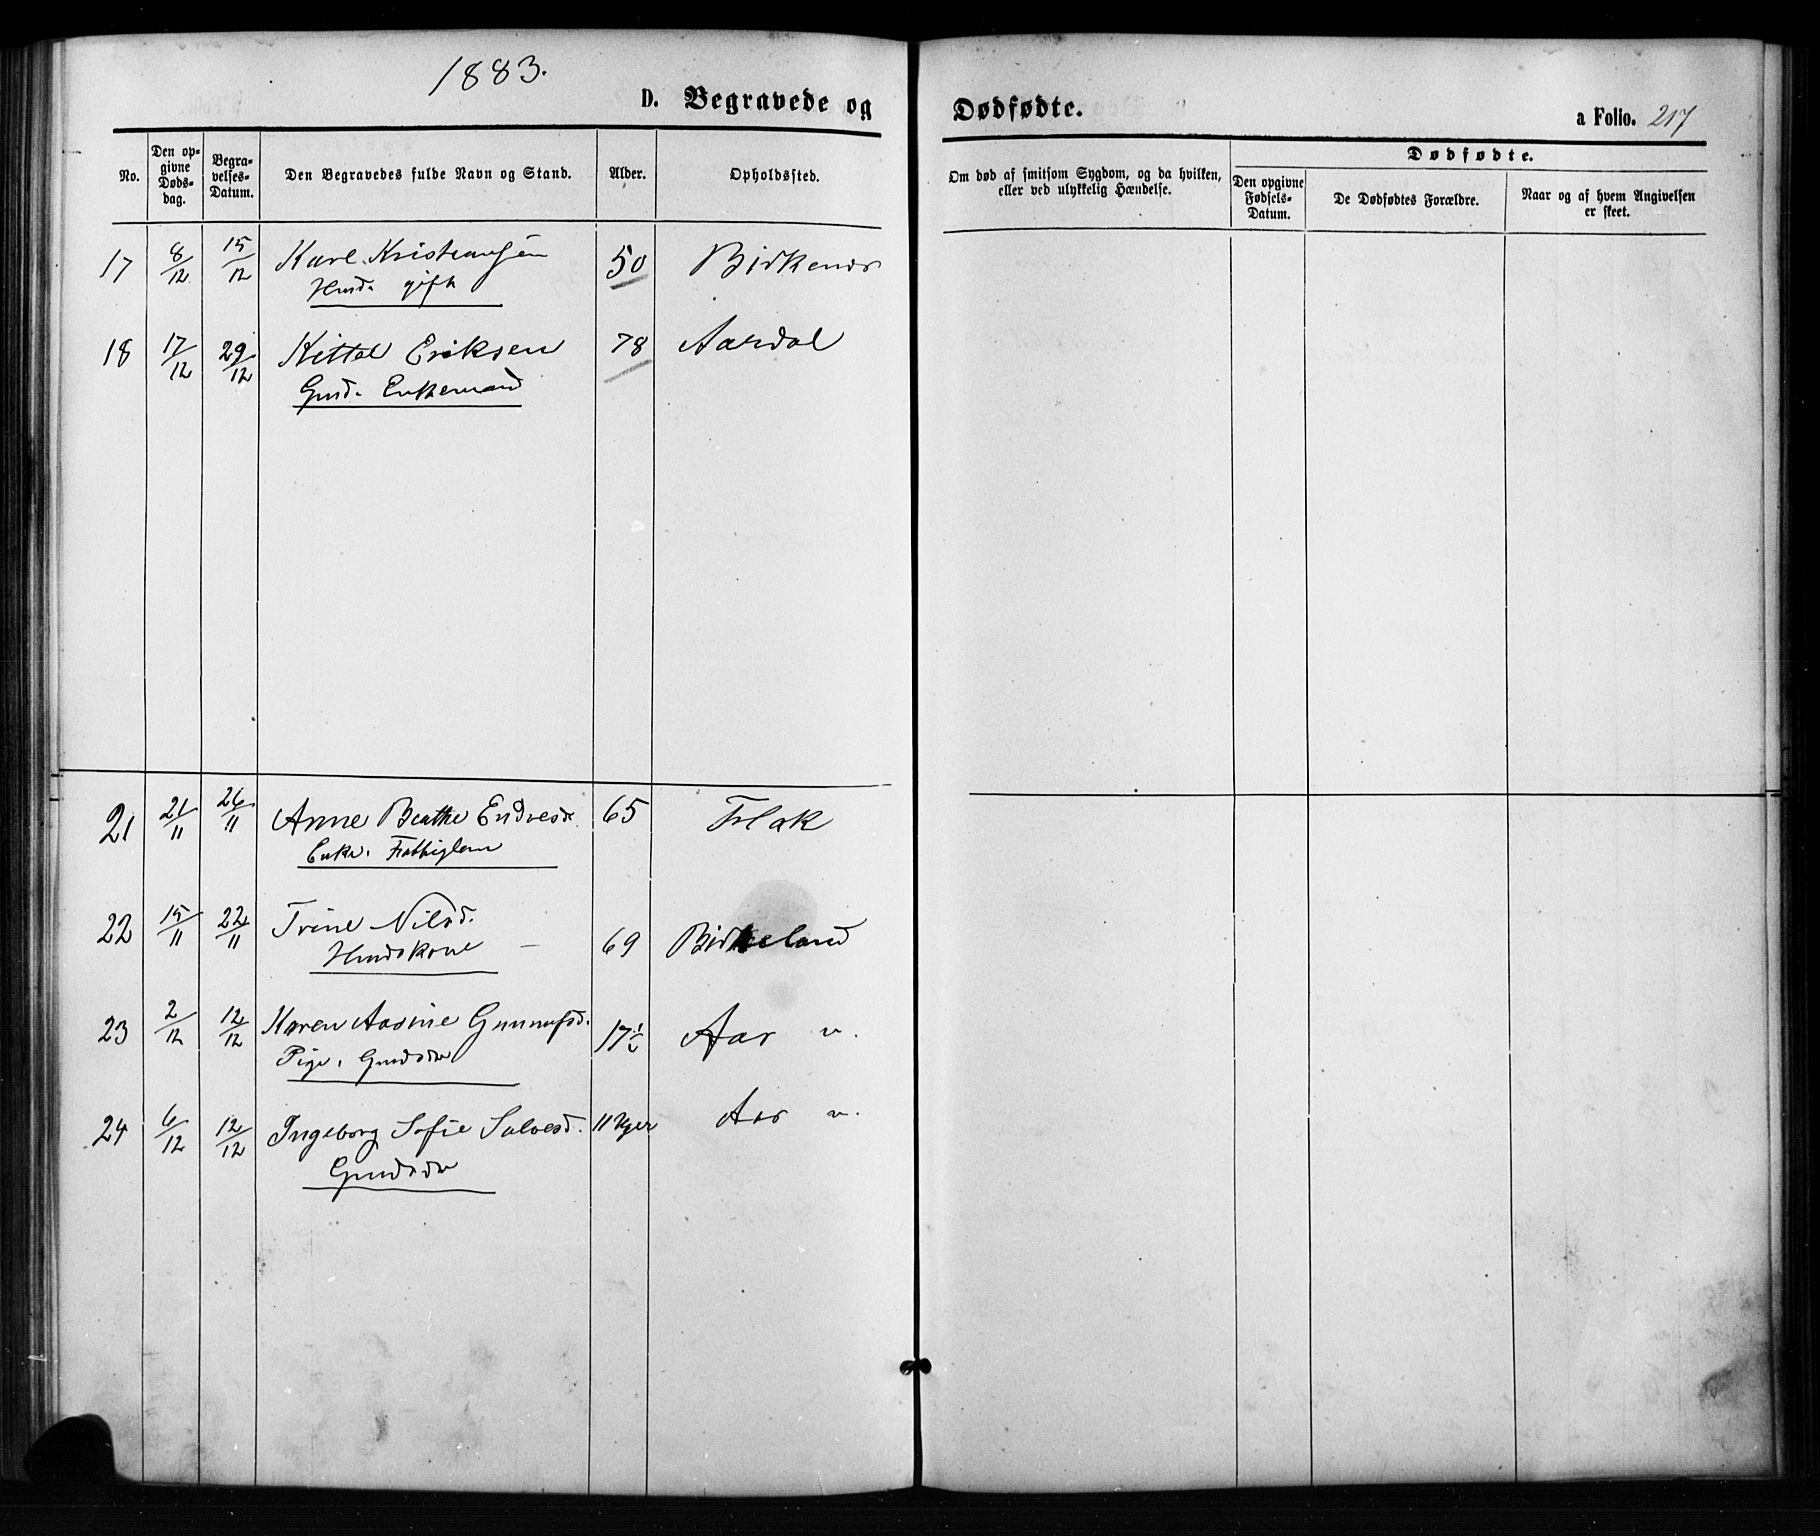 1883.
D. Begravede og
Dødfødte.
a Folio. 217
No.
Den op-
givne
Døds-
dag.
Begra-
velses-
Datum.
Den Begravedes fulde Navn og Stand.
Alder.
Opholdssted.
Om død af smitsom Sygdom, og da hvilken,
eller ved ulykkelig Hændelse.
Dødfødte.
Den opgivne
Fødsels-
Datum.
De Dødfødtes Forældre.
Naar og af hvem Angivelsen
er skeet.
17 8/12 15/12 Karl Kristiansen 50 Birkenes
Husm. gift
18 17/12 29/12 Kittel Eriksen 78 Aardal
Gmd. Enkemand
21 21/11 26/11 Anne Beathe Endresd. 65 Flak
Enke. Fattiglem
22 15/11 22/11 Trine Nilsd. 69 Birkeland
Hmdskone
23 2/12 12/12 Karen Aasine Gunnufsd. 17 1/2 Aas v.
Pige. Gmdsdr
24 6/12 12/12 Ingeborg Sofie Salvesd. 11 Uger Aas v.
Gmdsdr